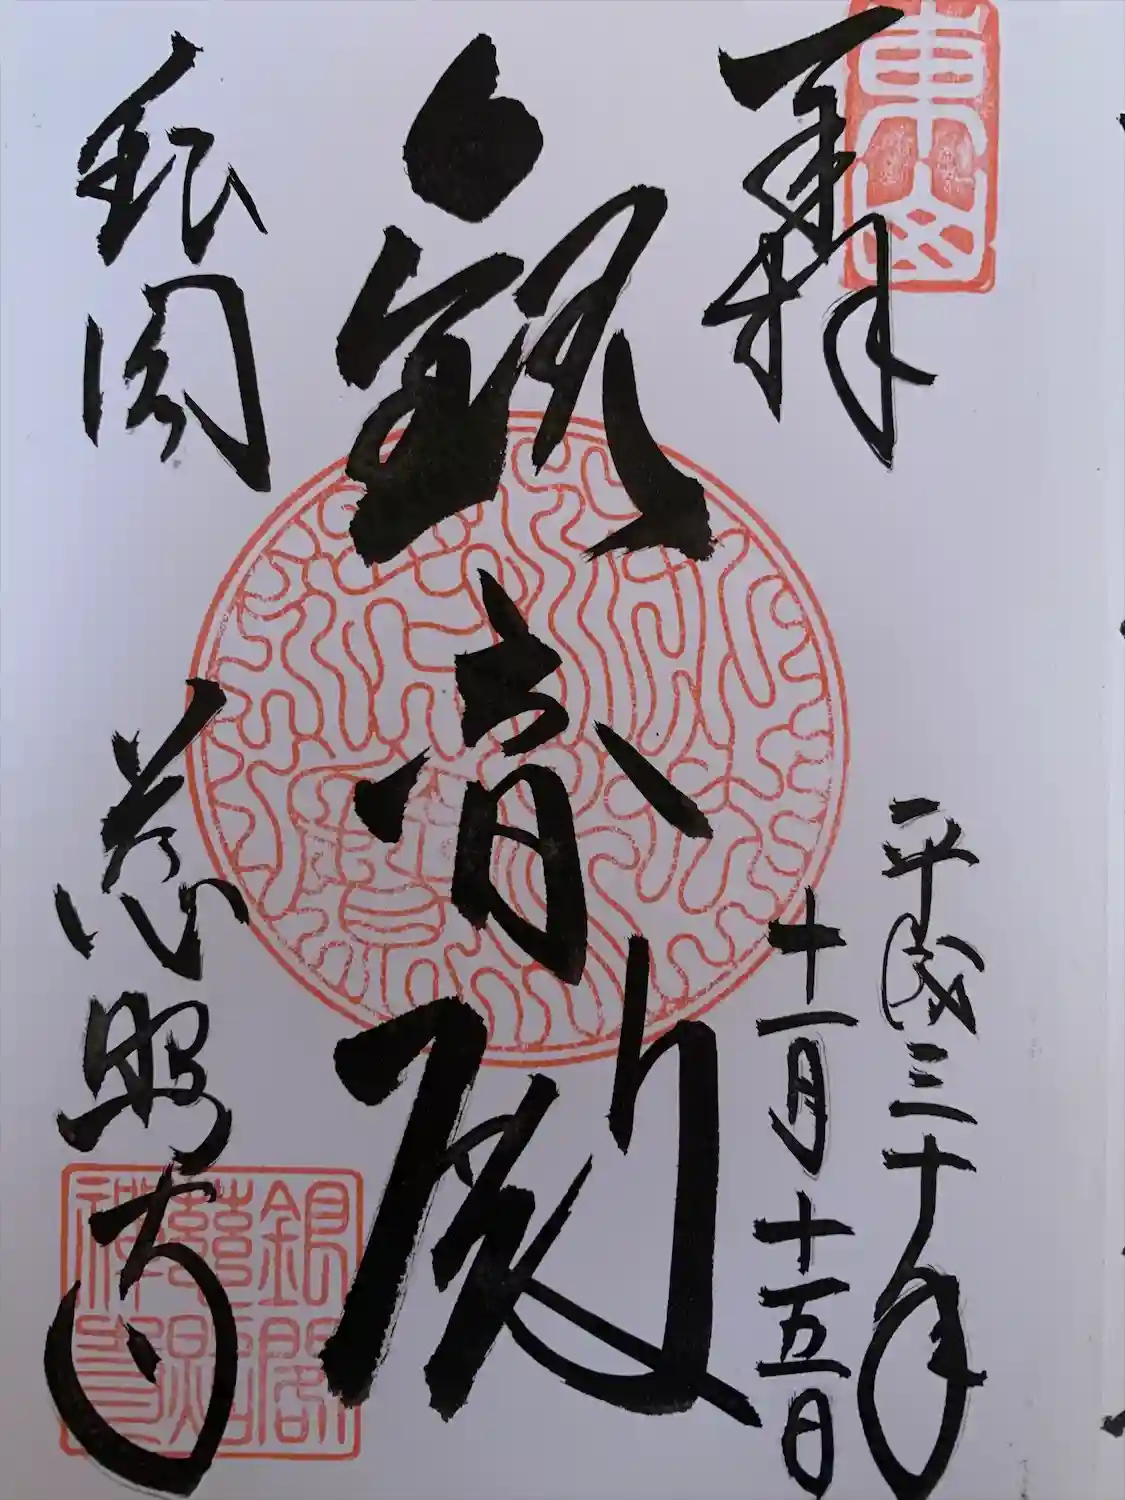 東山
奉拝
平成三十年
十一月十五日
観音殿
銀閣
慈照寺
銀閣
慈照
禅寺